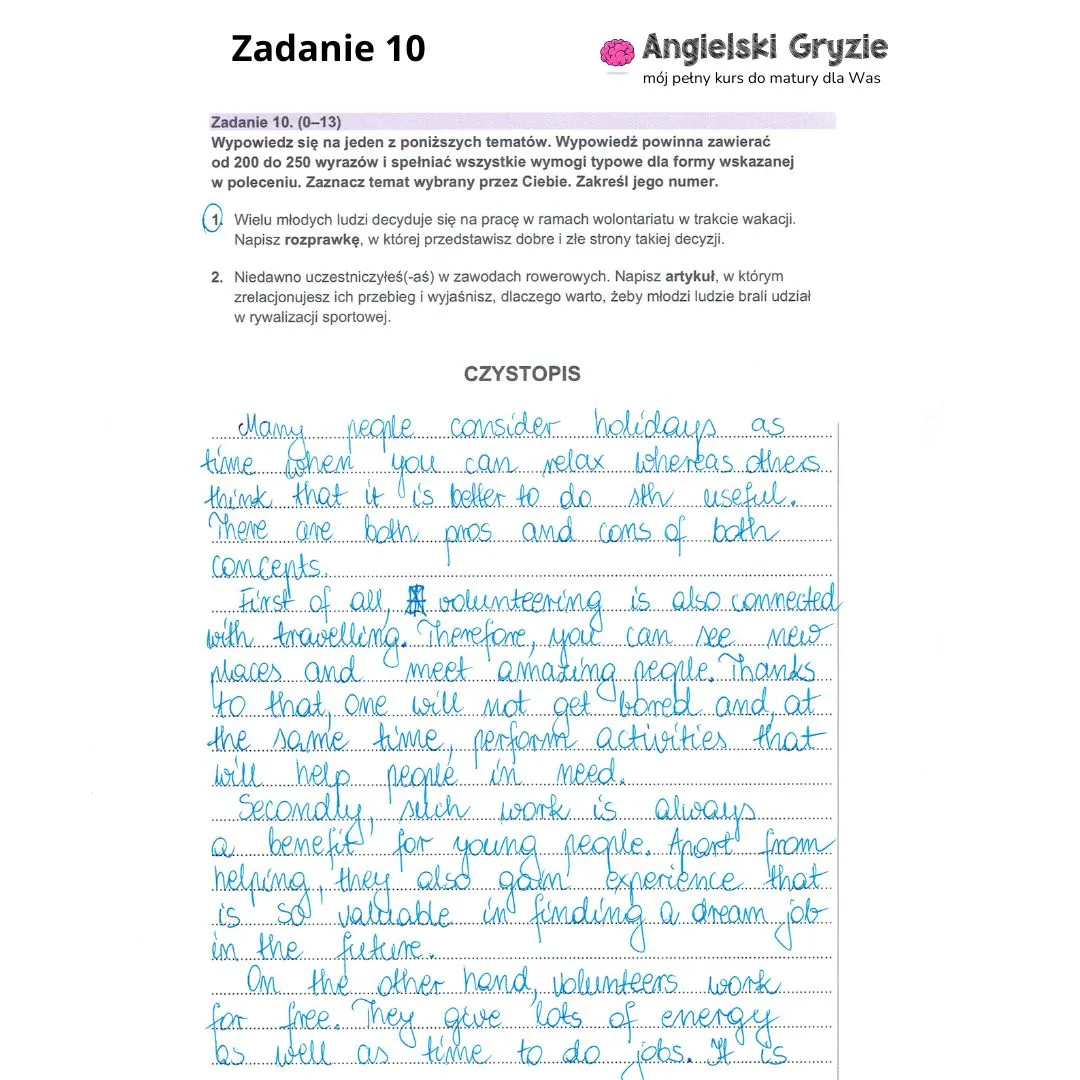 Zadanie 10
Angielski Gryzie
mój pełny kurs do matury dla Was
Zadanie 10. (0–13)
Wypowiedz się na jeden z poniższych tematów. Wypowiedź powinna zawierać
od 200 do 250 wyrazów i spełniać wszystkie wymogi typowe dla formy wskazanej
w poleceniu. Zaznacz temat wybrany przez Ciebie. Zakreśl jego numer.
1. Wielu młodych ludzi decyduje się na pracę w ramach wolontariatu w trakcie wakacji.
Napisz rozprawkę, w której przedstawisz dobre i złe strony takiej decyzji.
2. Niedawno uczestniczyłeś(-aś) w zawodach rowerowych. Napisz artykuł, w którym
zrelacjonujesz ich przebieg i wyjaśnisz, dlaczego warto, żeby młodzi ludzie brali udział
w rywalizacji sportowej.
CZYSTOPIS
Many people consider holidays as
time when you can relax whereas others
think that it is better to do sth useful.
There are both pros and cons of both
concepts.
First of all, volunteering is also connected
with travelling. Therefore, you can see new
places and meet amazing people. Thanks
to that, one will not get bored and, at
the same time, perform activities that
will help people in need.
Secondly, such work is always
a benefit for young people. Apart from
helping, they also gain experience that
is so valuable in finding a dream job
in the future.
On the other hand, volunteers work
for free. They give lots of energy
as well as time to do jobs. It is